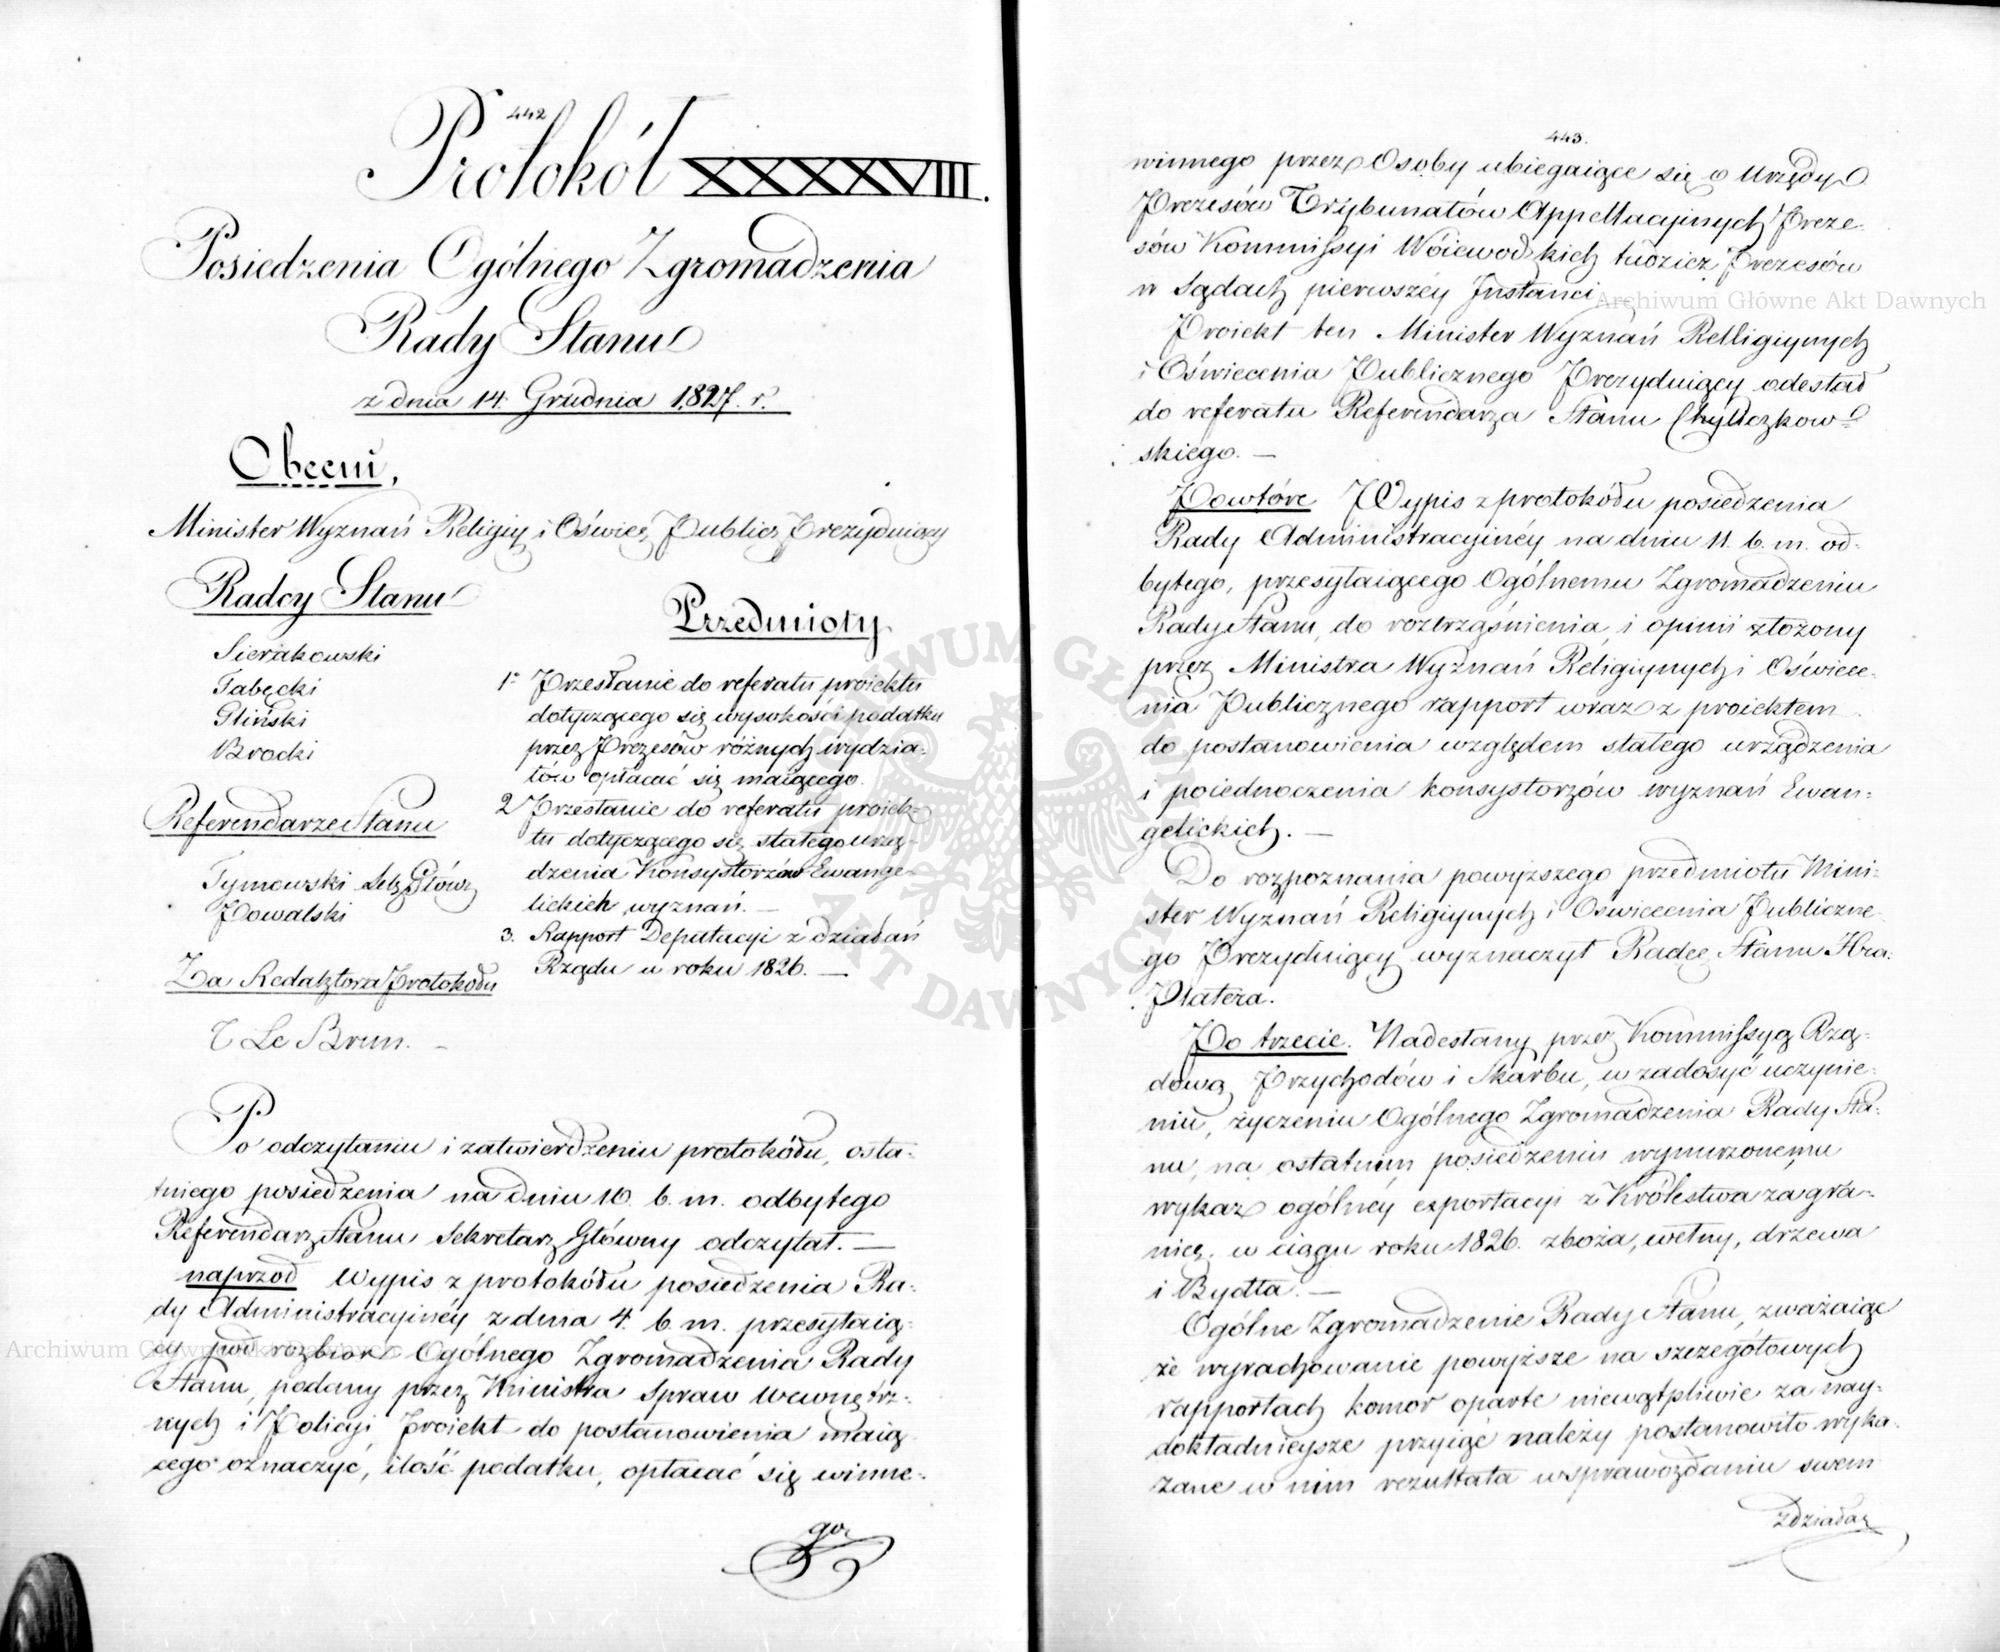 442
Protokół XXXXVIII.
Posiedzenia Ogólnego Zgromadzenia
Rady Stanu
z dnia 14. Grudnia 1827. r.
Obecni,
Minister Wyznań Religiy: i Oświec: Public: Prezyduiący
Radcy Stanu
Sierakowski
Tabęcki
Gliński
Brocki
Referendarze Stanu
Tymowski Sek: Główn:
Kowalski
Za Redaktora Protokółu
T Le Brun. —
Przedmioty
1° Przesłanie do referatu proiektu
dotyczącego się wysokości podatku
przez Prezesów różnych wydzia-
łów opłacać się maiącego.
2 Przesłanie do referatu proiek-
tu dotyczącego się stałego urzą-
dzenia Konsystorzów Ewange-
lickich wyznań. —
3. Rapport Deputacyi z działań
Rządu w roku 1826. —
Po odczytaniu i zatwierdzeniu protokółu, osta-
tniego posiedzenia na dniu 10. b. m. odbytego
Referendarz Stanu Sekretarz Główny odczytał. —
naprzód Wypis z protokółu posiedzenia Ra-
dy Administracyinéy z dnia 4. b. m. przesyłaią-
cy pod rozbior Ogólnego Zgromadzenia Rady
Stanu, podany przez Ministra Spraw Wewnętrz-
nych i Policyi Proiekt do postanowienia maią-
cego oznaczyć, ilość podatku, opłacać się winne-
go
443.
winnego przez Osoby ubiegaiące się o Urzędy
Prezesów Trybunałów Appellacyinych Preze-
sów Kommissyi Wóiewodzkich tudzież Prezesów
w Sądach pierwszéy Instancyi
Proiekt ten Minister Wyznań Relligiynych
i Oświecenia Publicznego Prezyduiący odesłał
do referatu Referendarza Stanu Chyliczkow-
skiego. —
Powtóre Wypis z protokółu posiedzenia
Rady Administracyinéy na dniu 11. b. m. od-
bytego, przesyłaiącego Ogólnemu Zgromadzeniu
Rady Stanu, do roztrząśnienia i opinii złożony
przez Ministra Wyznań Religiynych i Oświece-
nia Publicznego rapport wraz z proiektem
do postanowienia względem stałego urządzenia
i poiednoczenia konsystorzów wyznań Ewan-
gelickich. —
Do rozpoznania powyższego przedmiotu Mini-
ster Wyznań Religiynych i Oswiecenia Publiczne-
go Prezyduiący wyznaczył Radcę Stanu Hra:
Platera.
Po trzecie. Nadesłany przez Kommissyą Rzą-
dową Przychodów i Skarbu, w zadosyć uczynie-
niu, życzeniu Ogólnego Zgromadzenia Rady Sta-
nu, na ostatnim posiedzeniu wynurzonemu
wykaz ogólnéy exportacyi z Królestwa za gra-
nicę w ciągu roku 1826. zboża, wełny, drzewa
i Bydła. —
Ogólne Zgromadzenie Rady Stanu, zważaiąc
że wyrachowanie powyższe na szczegółowych
rapportach komor oparte niewątpliwie za nay-
dokładnieysze przyiąć należy postanowiło wyka-
zane w nim rezultata w sprawozdaniu swem
z działań
Archiwum Główne Akt Dawnych
Archiwum Główne Akt Dawnych
ARCHIWUM GŁÓWNE AKT DAWNYCH